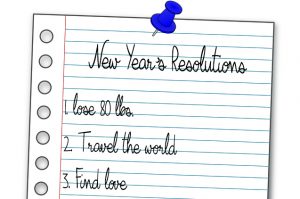 New Year's Resolutions
1. lose 80 lbs.
2. Travel the world
3. Find love